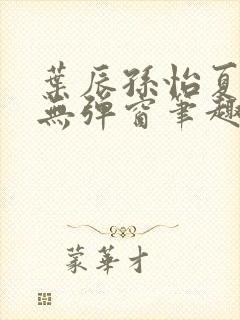 葉辰孫怡夏
無彈窗筆趣
蒙華才